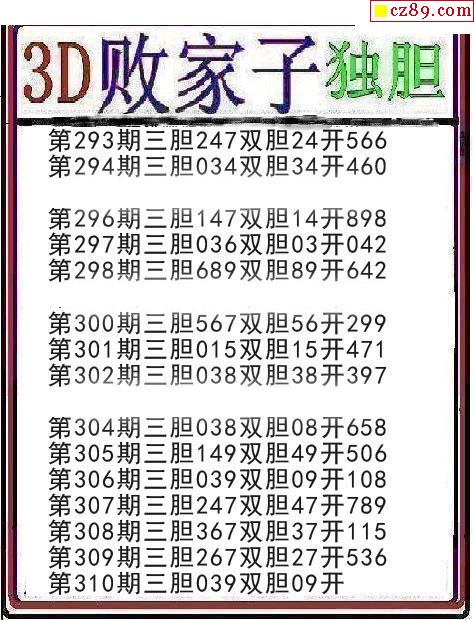 cz89.com
3D败家子独胆
第293期三胆247双胆24开566
第294期三胆034双胆34开460
第296期三胆147双胆14开898
第297期三胆036双胆03开042
第298期三胆689双胆89开642
第300期三胆567双胆56开299
第301期三胆015双胆15开471
第302期三胆038双胆38开397
第304期三胆038双胆08开658
第305期三胆149双胆49开506
第306期三胆039双胆09开108
第307期三胆247双胆47开789
第308期三胆367双胆37开115
第309期三胆267双胆27开536
第310期三胆039双胆09开